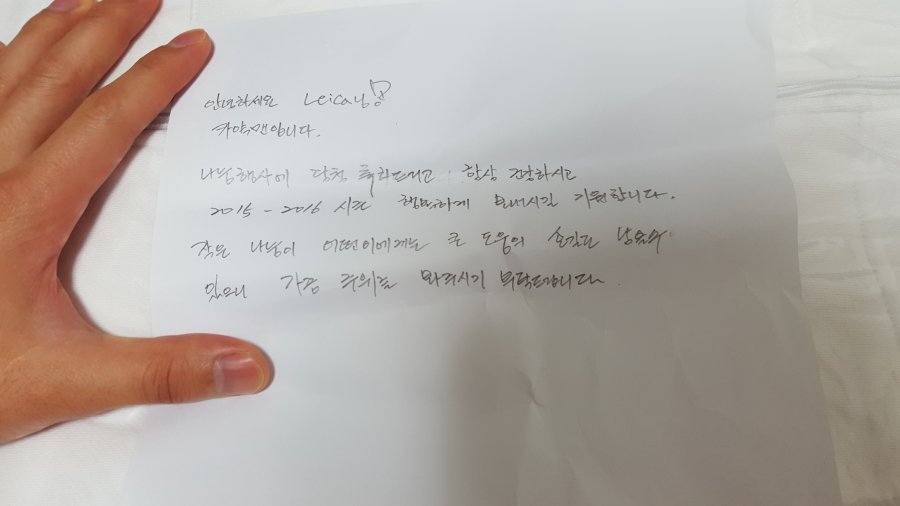 안녕하세요 Leica님
카약맨입니다.
나눔행사에 당첨 축하드리고 항상 건강하시고
2015 - 2016 시즌 행복하게 보내시길 기원합니다.
작은 나눔이 어떤이에게는 큰 도움의 손길로
있으니 가끔 주위를 봐주시기 부탁드립니다.